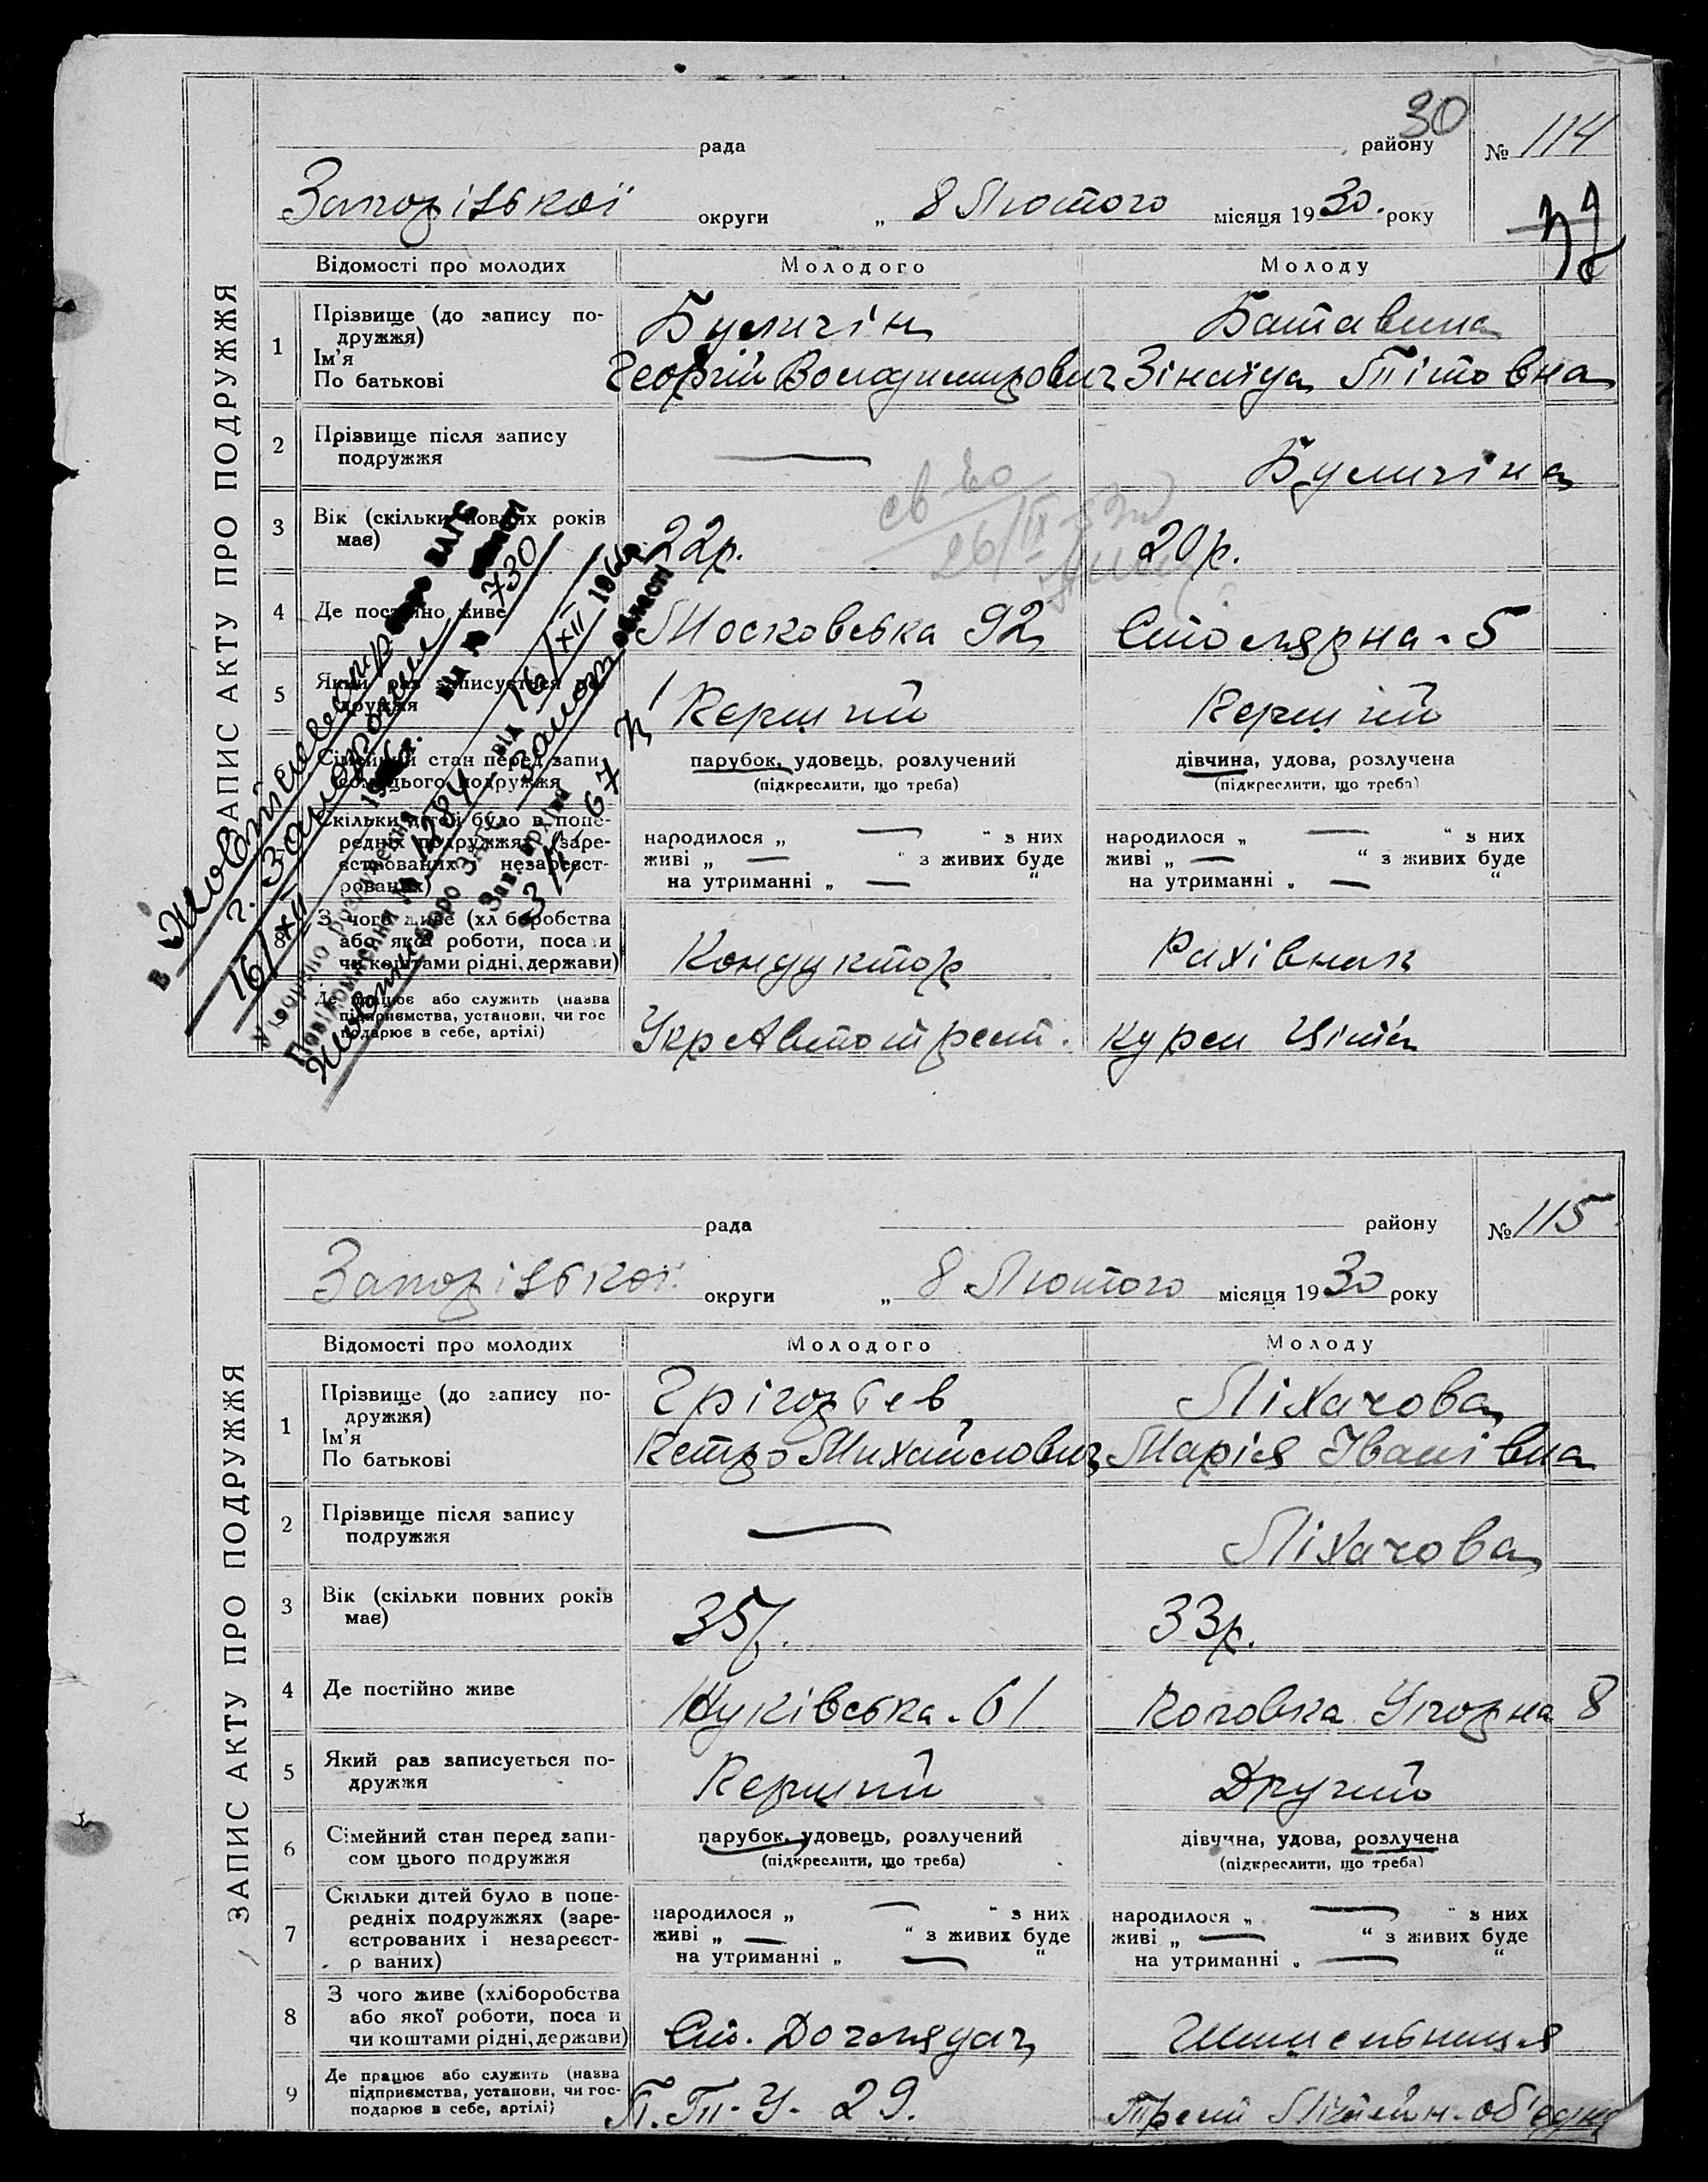 30
рада району № 114
Запорізької округи „ 8 Лютого місяця 1930. року
ЗАПИС АКТУ ПРО ПОДРУЖЖЯ
Відомості про молодих Молодого Молоду
1 Прізвище (до запису по-
дружжя)
Ім'я
По батькові
Буличін
Георгій Володимирович
Батавина
Зінаїда Тітовна
2 Прізвище після запису
подружжя
— Буличіна
3 Вік (скільки повних років
має)
22р. 20р.
4 Де постійно живе
Московська 92 Столярна - 5
5 Який раз записується по-
дружжя
Перший Перший
Сімейний стан перед запи-
сом цього подружжя
парубок, удовець, розлучений
(підкреслити, що треба)
дівчина, удова, розлучена
(підкреслити, що треба)
Скільки дітей було в попе-
редніх подружжях (заре-
єстрованих і незареєст-
рованих)
народилося „ — “ з них
живі „ — “ з живих буде
на утриманні „ — “
народилося „ — “ з них
живі „ — “ з живих буде
на утриманні „ — “
8 З чого живе (хліборобства
або якої роботи, посади
чи коштами рідні, держави)
Кондуктор Рахівник
Де працює або служить (назва
підприємства, установи, чи гос
подарює в себе, артілі)
УкрАвтотрест.
730
16/XII
16/XII 1966
№ 1284 від
рада району № 115
Запорізької округи „ 8 Лютого місяця 1930 року
ЗАПИС АКТУ ПРО ПОДРУЖЖЯ
Відомості про молодих Молодого Молоду
1 Прізвище (до запису по-
дружжя)
Ім'я
По батькові
Грігорьев
Петро Михайлович
Ліхачова
Марія Іванівна
2 Прізвище після запису
подружжя
— Ліхачова
3 Вік (скільки повних років
має)
35р. 33р.
4 Де постійно живе
61 8
5 Який раз записується по-
дружжя
Перший Другий
6 Сімейний стан перед запи-
сом цього подружжя
парубок, удовець, розлучений
(підкреслити, що треба)
дівчина, удова, розлучена
(підкреслити, що треба)
7 Скільки дітей було в попе-
редніх подружжях (заре-
єстрованих і незареєст-
р ваних)
народилося „ — “ з них
живі „ — “ з живих буде
на утриманні „ — “
народилося „ — “ з них
живі „ — “ з живих буде
на утриманні „ — “
8 З чого живе (хліборобства
або якої роботи, поса и
чи коштами рідні, держави)
Ст. Доглядач
9 Де працює або служить (назва
підприємства, установи, чи гос-
подарює в себе, артілі)
29. Трест